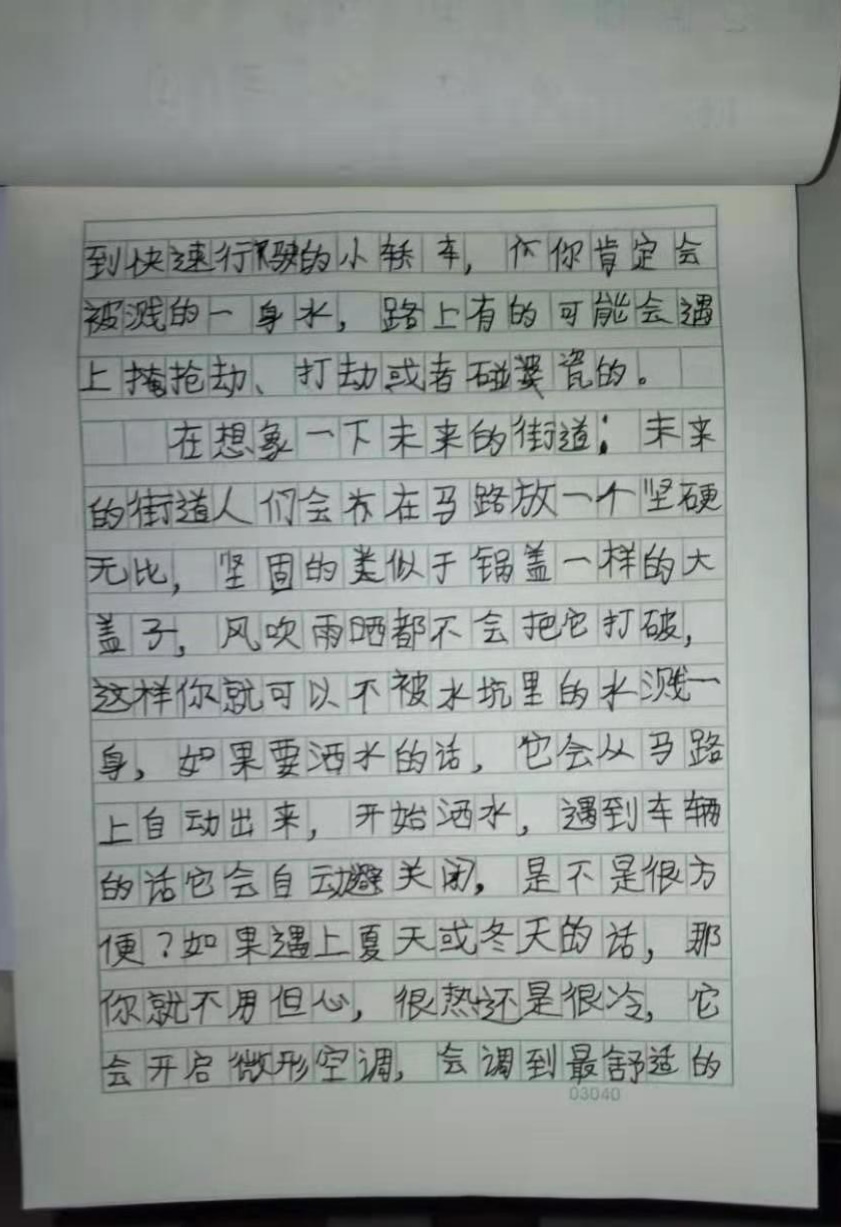 到快速行驶的小轿车，你肯定会
被溅的一身水，路上有的可能会遇
上抢劫、打劫或者碰瓷的。
在想象一下未来的街道：未来
的街道人们会在马路放一个坚硬
无比，坚固的类似于锅盖一样的大
盖子，风吹雨晒都不会把它打破，
这样你就可以不被水坑里的水溅一
身，如果要洒水的话，它会从马路
上自动出来，开始洒水，遇到车辆
的话它会自动关闭，是不是很方
便？如果遇上夏天或冬天的话，那
你就不用但心，很热还是很冷，它
会开启微形空调，会调到最舒适的
03040